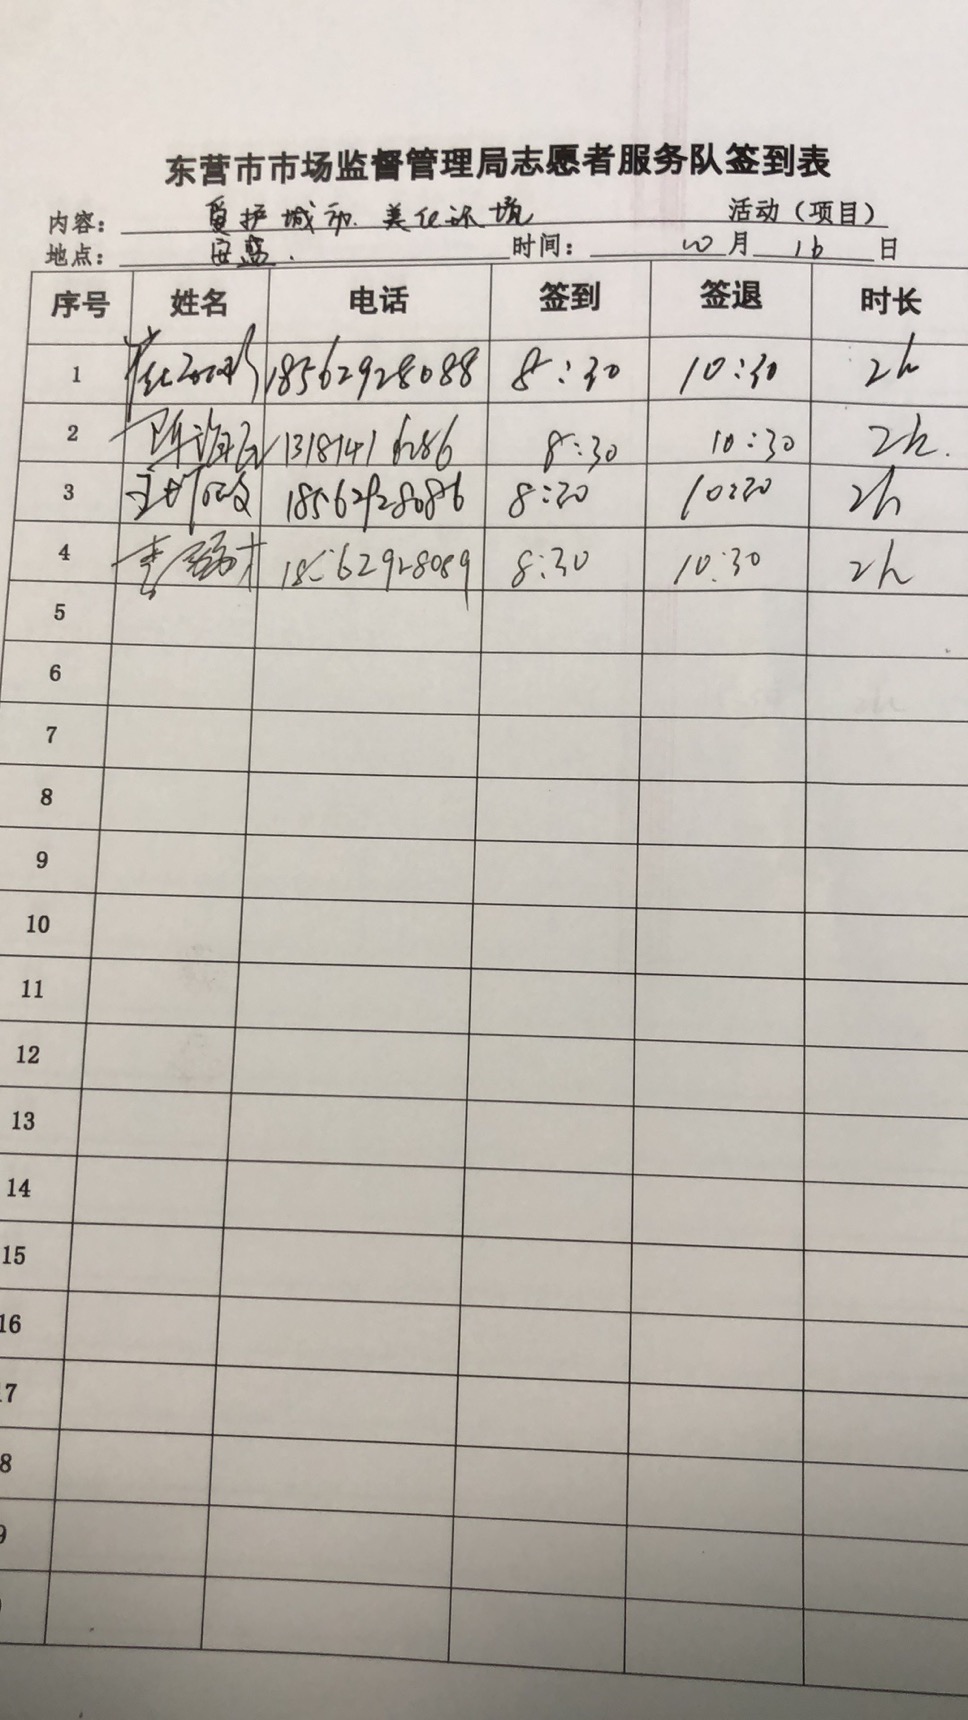 东营市市场监督管理局志愿者服务队签到表
内容： 爱护城市 美化环境 活动（项目）
地点： 时间： 10 月 16 日
序号 姓名 电话 签到 签退 时长
1 18562928088 8:30 10:30 2h
2 13181416286 8:30 10:30 2h.
3 18562928086 8:30 10:30 2h
4 18562928089 8:30 10:30 2h
5
6
7
8
9
10
11
12
13
14
15
16
17
8
9